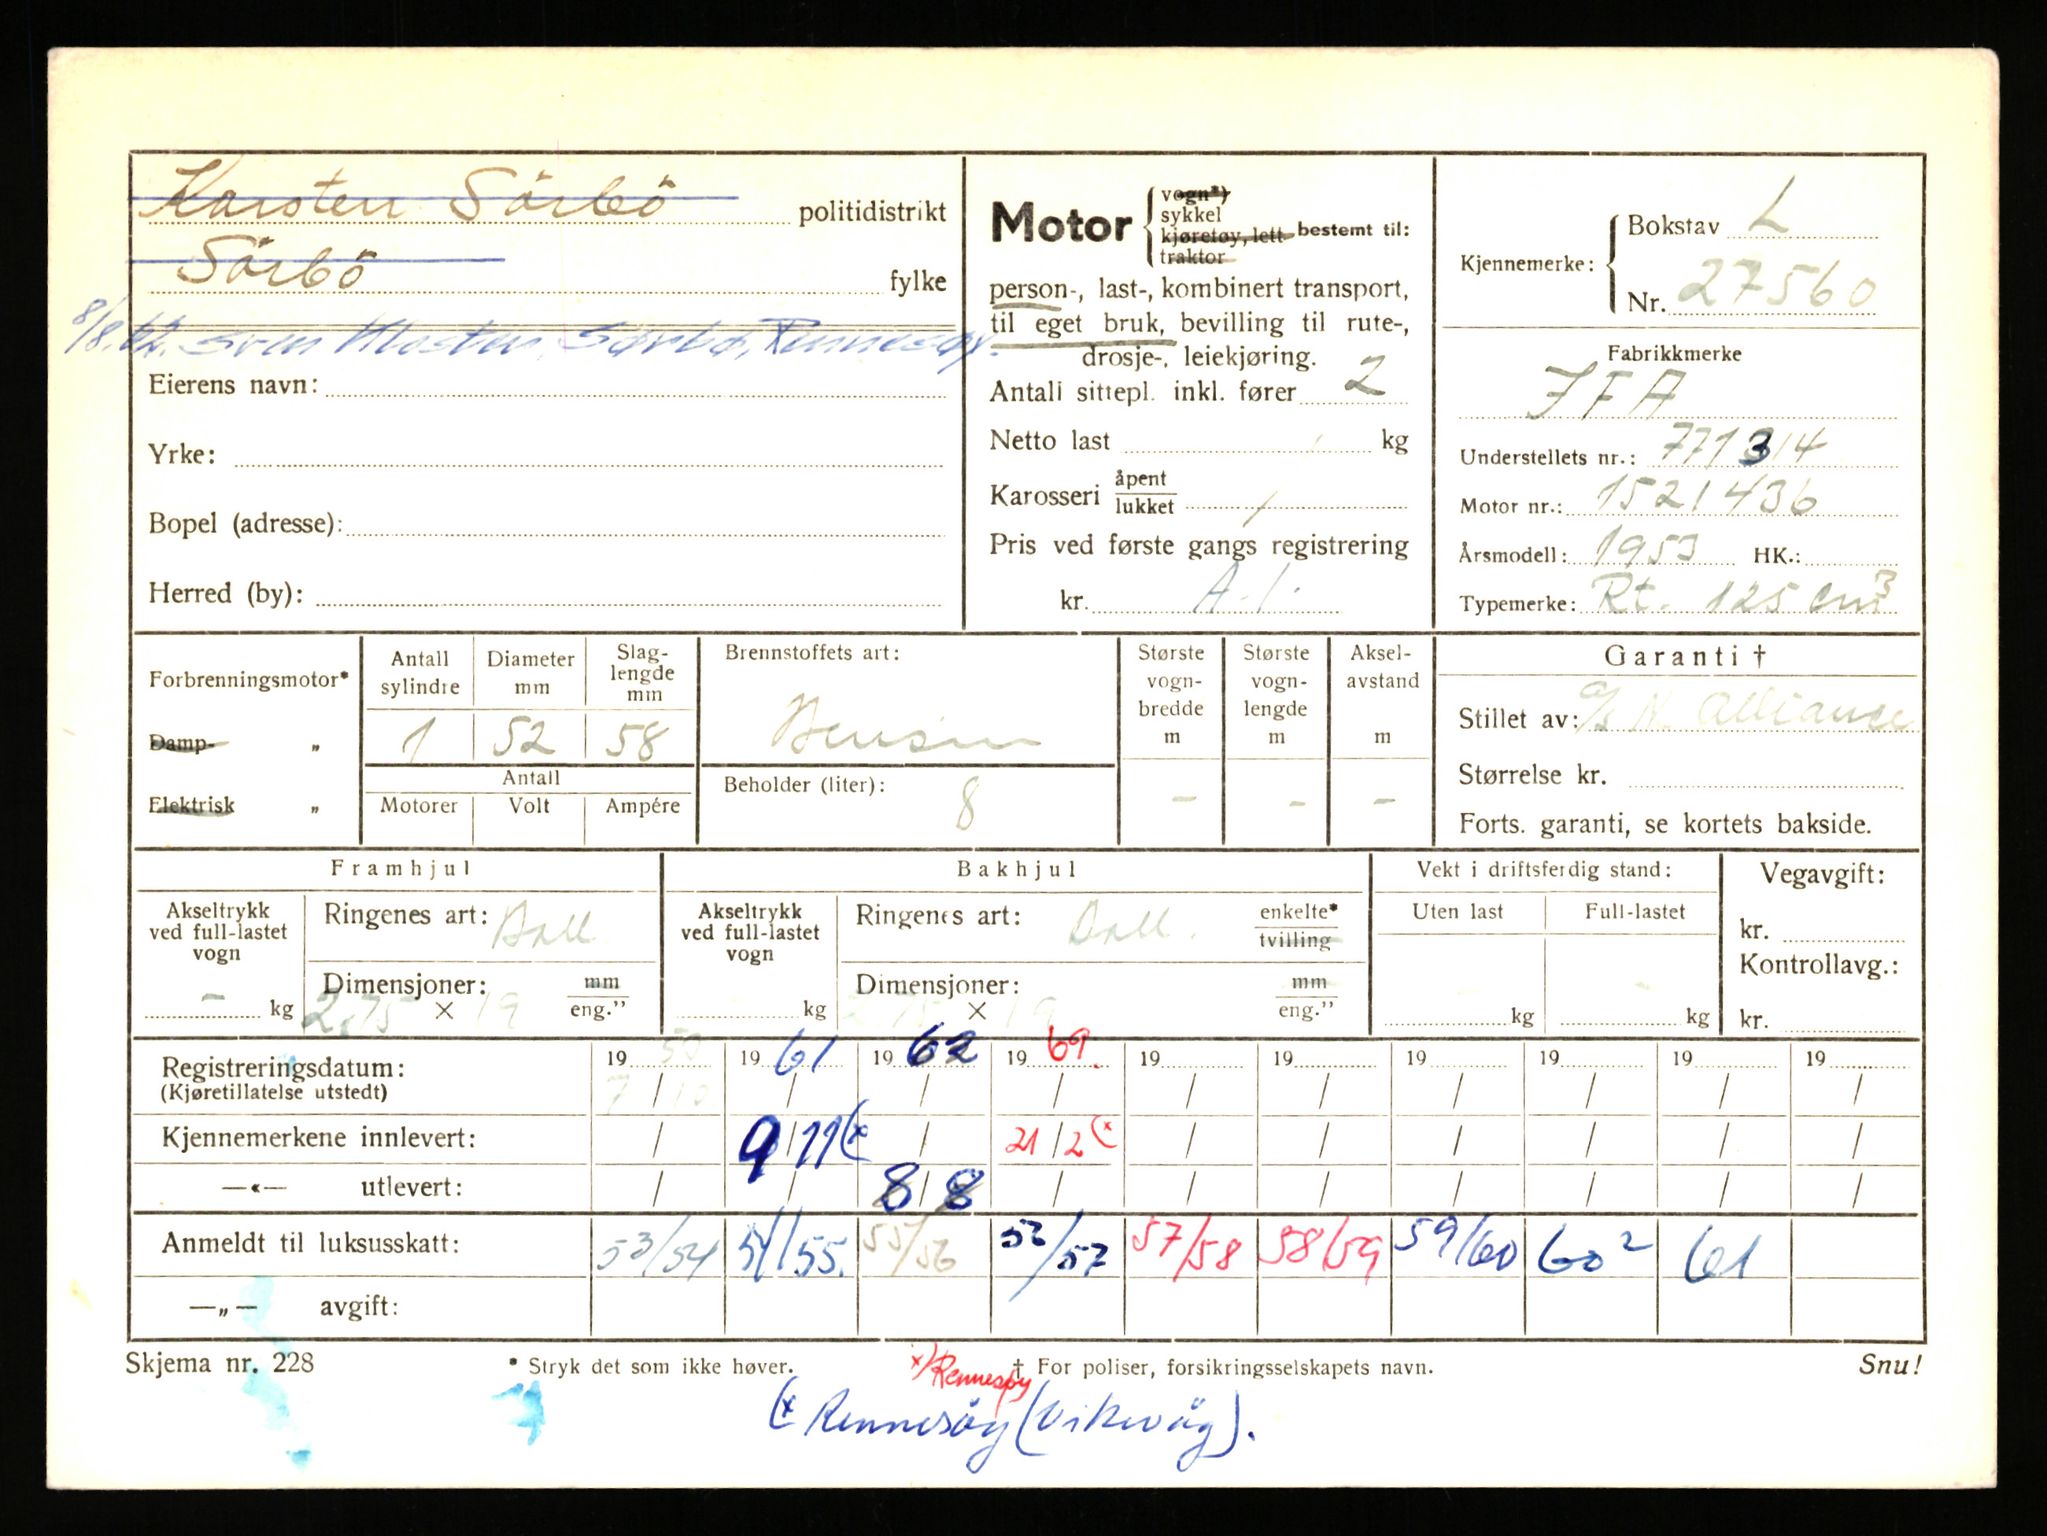 Karsten Sörbö politidistrikt
Sörbö fylke
8/8.62. Sven Klosten, Sørbø, Rennesøy.
Eierens navn:
Yrke:
Bopel (adresse):
Herred (by):
Motor vogn*) sykkel kjøretøy, lett traktor bestemt til:
person-, last-, kombinert transport,
til eget bruk, bevilling til rute-,
drosje-, leiekjøring.
Antall sittepl. inkl. fører 2
Netto last kg
Karosseri åpent lukket
Pris ved første gangs registrering
kr.
Kjennemerke: Bokstav L
Nr. 27560
Fabrikkmerke
IFA
Understellets nr.: 771314
Motor nr.: 1521436
Årsmodell: 1953 HK.:
Typemerke: Rt. 125 cm3
Forbrenningsmotor*
Damp- „
Elektrisk „
Antall sylindre Diameter mm Slaglengde min
1 52 58
Antall
Motorer Volt Ampére
Brennstoffets art:
Bensin
Beholder (liter):
8
Største vogn-bredde m
-
Største vogn-lengde m
-
Aksel-avstand m
-
Garanti †
Stillet av: A/S N. Alliance
Størrelse kr.
Forts. garanti, se kortets bakside.
Framhjul
Akseltrykk ved full-lastet vogn
- kg
Ringenes art: Ball.
Dimensjoner: mm
2,75 × 19 eng.”
Bakhjul
Akseltrykk ved full-lastet vogn
kg
Ringenes art: Ball. enkelte* tvilling
Dimensjoner: mm
2 75 × 19 eng.”
Vekt i driftsferdig stand:
Uten last Full-lastet
kg - kg
Vegavgift:
kr.
Kontrollavg.:
kr.
Registreringsdatum: 19 53 19 61 19 62 19 69. 19 19 19 19 19 19
(Kjøretillatelse utstedt) 7/10 / / / / / / / / /
Kjennemerkene innlevert: / 9/11(* / 21/2(* / / / / / /
—«— utlevert: / / 8/8 / / / / / / /
Anmeldt til luksusskatt: 53/54 54/55. 55/56 56/57 57/58 58/59 59/60 60² 61
—„— avgift:
Skjema nr. 228 * Stryk det som ikke høver. † For poliser, forsikringsselskapets navn. Snu!
x) Rennesøy
(x Rennesöy (Vikevåg).